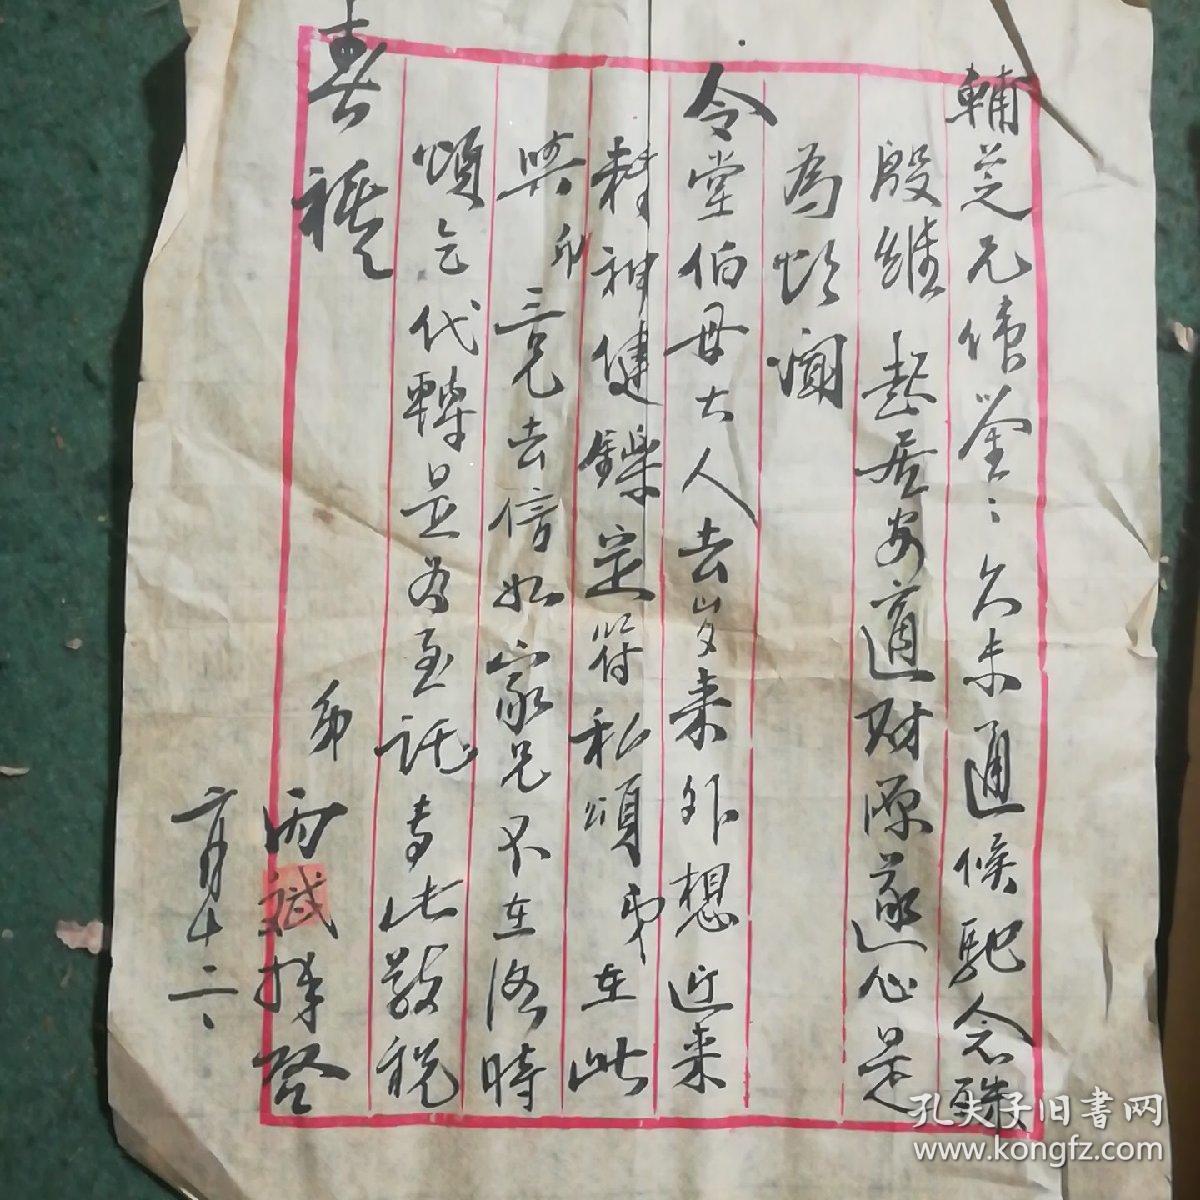 輔芝兄倩鉴：久未通候馳念殊
殷維起居安適財源遂心是
為頌闻
令堂伯母大人去岁来外想近来
精神健鑠定符私頌弟在此
與卯三兄去信如家兄不在洛時
順乞代轉是為至託专此敬稅
春禧
弟丙斌拜啓
二月十二、
孔夫子旧書网
www.kongfz.com